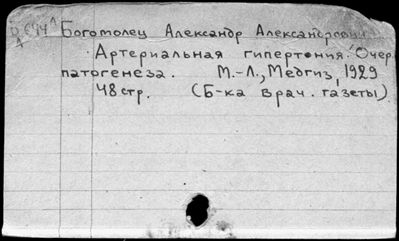 Богомолец Александр Александрович
Артериальная гипертония. Очер.
патогенеза. М.-Л., Медгиз, 1929
48 стр. (Б-ка врач. газеты)